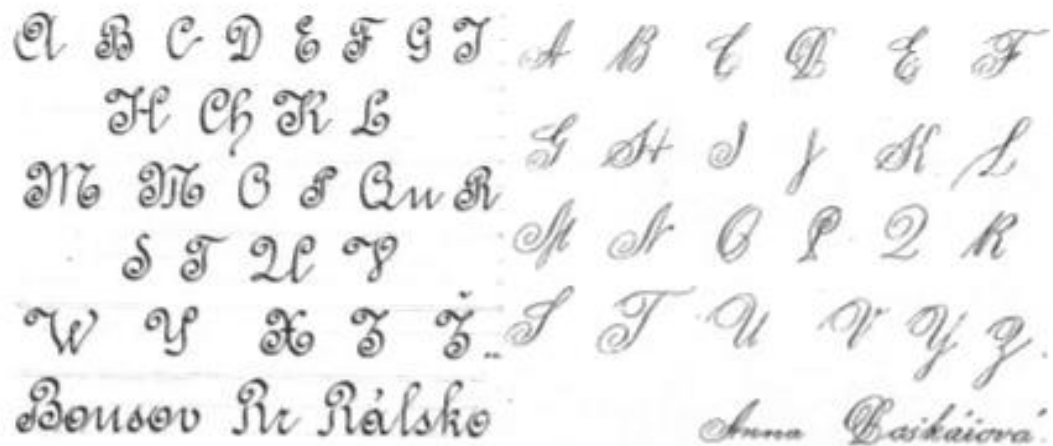 A B C D E F G I
H Ch K L
M M O P Qu R
S T U V
W Y X Z Ž
Bousov Rr Rálsko
A B C D E F
G H I J K L
M N O P Q R
S T U V Y Z
Anna